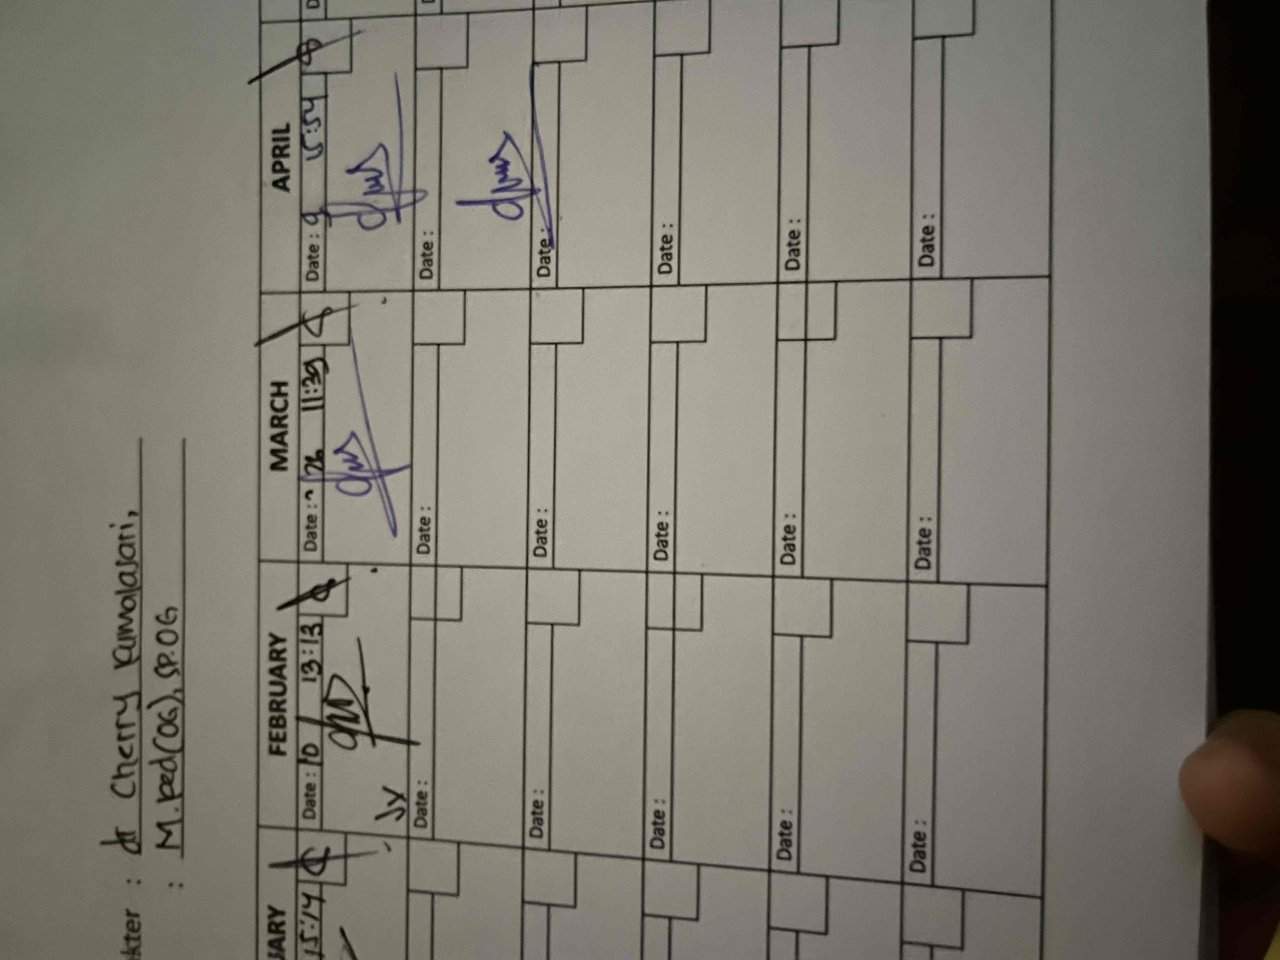 kter : dr Cherry Kumalasari,
: M.Ked(OG), SP.OG
UARY FEBRUARY MARCH APRIL
15:14 Date : 10 13:13 Date : 26 11:39 Date : 9 15:54
Date : Date : Date :
Date : Date : Date :
Date : Date : Date :
Date : Date : Date :
Date : Date : Date :